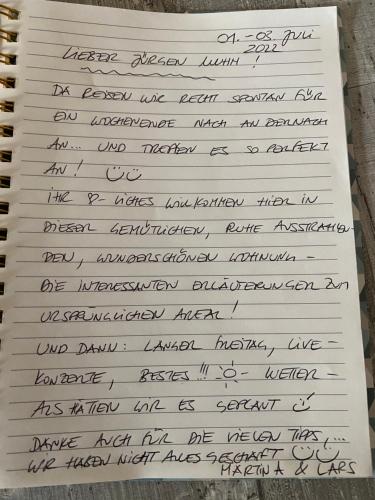 01. - 03. Juli
2022
LIEBER JÜRGEN MUHH !
DA REISEN WIR RECHT SPONTAN FÜR
EIN WOCHENENDE NACH ANDERNACH
AN... UND TREFFEN ES SO PERFEKT
AN !
IHR ♡-LICHES WILLKOMMEN HIER IN
DIESER GEMÜTLICHEN, RUHE AUSSTRAHLEN-
DEN, WUNDERSCHÖNEN WOHNUNG -
DIE INTERESSANTEN ERLÄUTERUNGEN ZUM
URSPRÜNGLICHEN AREAL !
UND DANN: LANGER FREITAG, LIVE-
KONZERTE, BESTES !!! ☼ - WETTER -
ALS HÄTTEN WIR ES GEPLANT
DANKE AUCH FÜR DIE VIELEN TIPPS,...
WIR HABEN NICHT ALLES GESCHAFFT
MARTINA & LARS